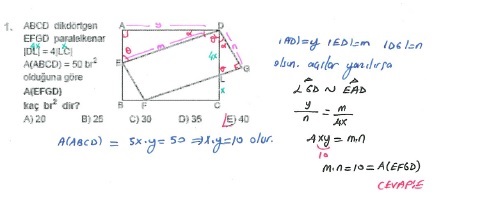 1. ABCD dikdörtgen
EFGD paralelkenar
|DL| = 4|LC|
4x x
A(ABCD) = 50 br²
olduğuna göre
A(EFGD)
kaç br² dir?
A) 20 B) 25 C) 30 D) 35 E) 40
A y D
m n
4x
E G
L
x
B F C
|AD|=y |ED|=m |DG|=n
olsun. açılar yazılırsa
LGD ~ EAD
y/n = m/4x
4xy = m.n
10
m.n=10=A(EFGD)
CEVAP:E
A(ABCD) = 5x.y=50 ⇒ x.y=10 olur.